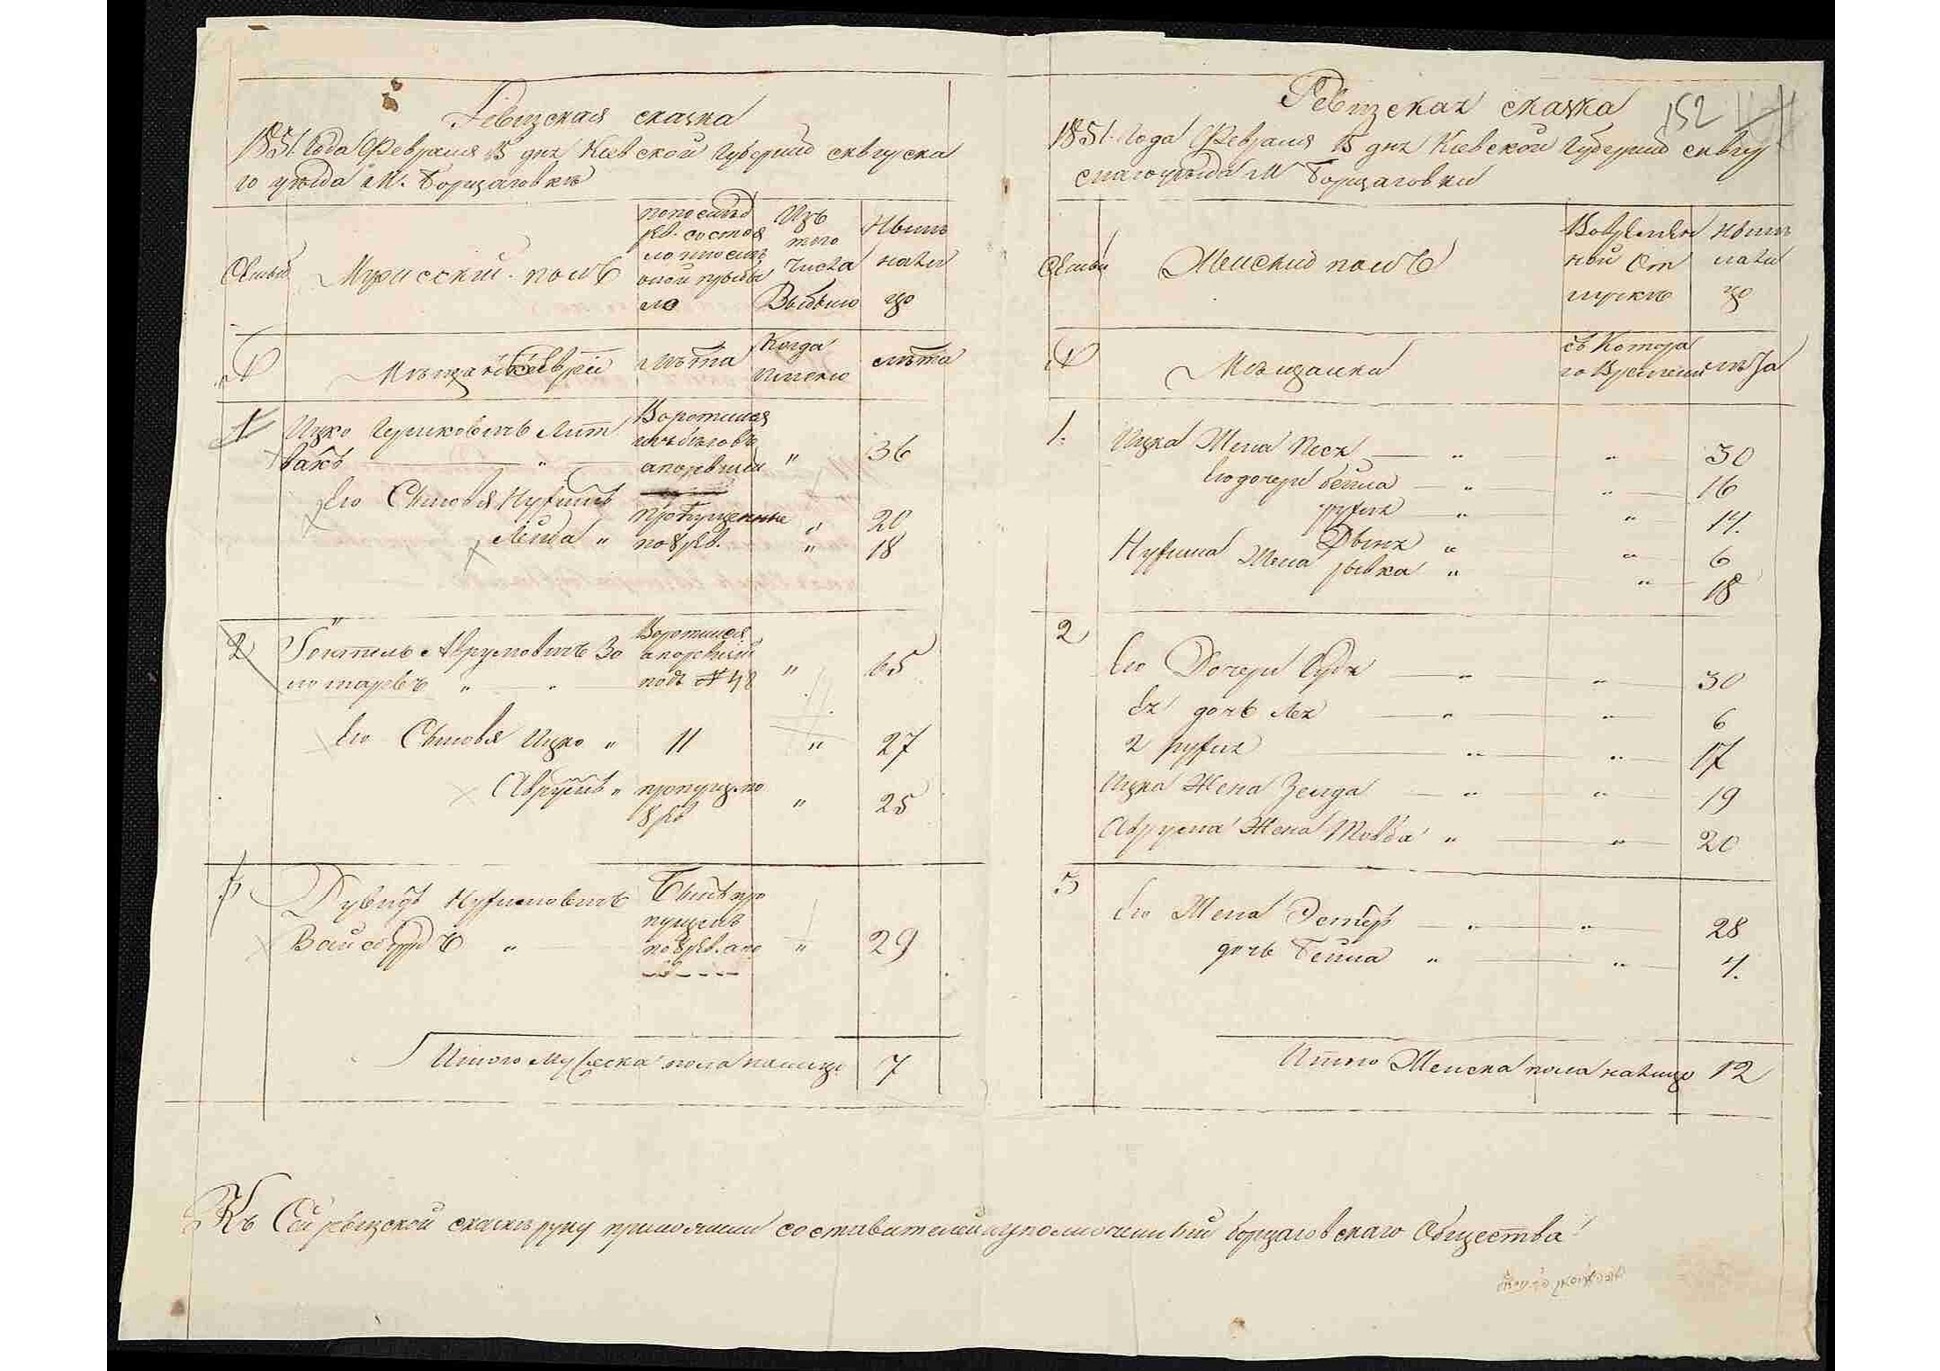 Ревизская сказка
1851 Года Февраля 15 дня Киевской Губернии сквирска
го уезда М. Борщаговкъ
Семьи
Мужеский полъ
по последней
рев. состоя
ло и после
оной прибы
ло
Изъ
того
числа
Выбыло
Ныне
нали
цо
№
Мещане Евреи
лета
Когда
именно
лета
1
Ицко Гершковичъ Лит
вакъ "
Воротился
изъ беговъ
а по ревизии
" 36
Его Сыновья Нухимъ
пропущенные
" 20
Лейба "
по 8 рев.
" 18
2
Аврумовичъ Зо
лотаревъ "
Воротился
а по ревизии
подъ № 48
" 65
Его Сыновья Ицко " 11 " 27
Аврумъ " пропущ. по
8 рев " 25
3
Дувидъ Нухимовичъ
"
Былъ про
пущенъ
по 8 рев. а по
" 29
Итого Мужеска пола налицо 7
152
Ревизская сказка
1851 Года Февраля 15 дня Киевской Губернии сквир
скаго уезда М Борщаговки
Семьи
Женский полъ
Во времен
ной от
лучке
Ныне
нали
цо
№
Мещанки
съ Котора
го Времени
лета
1. Ицка Жена Песя " " 30
Его дочери бейла " " 16
рухля " " 14.
Двося " " 6
Нухима Жена рывка " " 18
2
Его Дочери " " 30
Ея дочь Лея " " 6
2 рухля " " 17
Ицка Жена Зелда " " 19
Аврума Жена Товба " " 20
3
Его Жена Эстеръ " " 28
дочь Бейла " " 4.
Итого Женска пола налицо 12
Къ Сей ревизской сказке руку приложили составители и уполномоченный борщаговскаго Общества